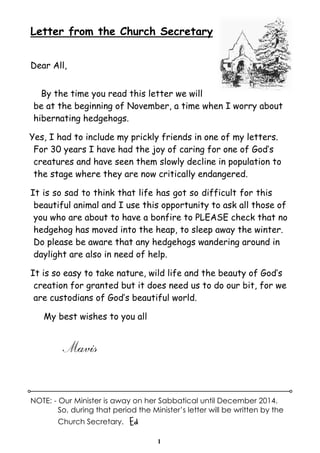 Letter from the Church Secretary
Dear All,
By the time you read this letter we will
be at the beginning of November, a time when I worry about
hibernating hedgehogs.
Yes, I had to include my prickly friends in one of my letters.
For 30 years I have had the joy of caring for one of God's
creatures and have seen them slowly decline in population to
the stage where they are now critically endangered.
It is so sad to think that life has got so difficult for this
beautiful animal and I use this opportunity to ask all those of
you who are about to have a bonfire to PLEASE check that no
hedgehog has moved into the heap, to sleep away the winter.
Do please be aware that any hedgehogs wandering around in
daylight are also in need of help.
It is so easy to take nature, wild life and the beauty of God's
creation for granted but it does need us to do our bit, for we
are custodians of God's beautiful world.
My best wishes to you all
Mavis
NOTE: - Our Minister is away on her Sabbatical until December 2014.
So, during that period the Minister's letter will be written by the
Church Secretary. Ed
1